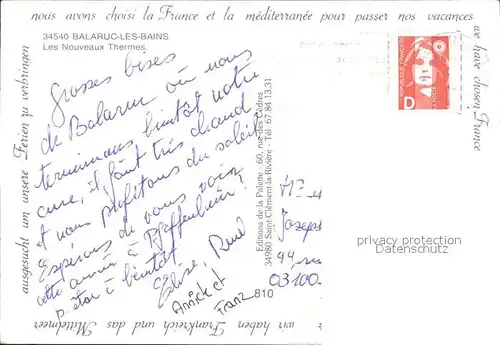 nous avons choisi la France et la méditerranée pour passer nos vacances
34540 BALARUC-LES-BAINS
Les Nouveaux Thermes.
Grosses bises
de Balaruc où nous
terminons bientôt notre
cure, il fait très chaud
et nous profitons du soleil.
Espérons de vous voir
cette année à Pfaffenheim?
à bientôt
Elise,
Annick et
Franz
810
Editions de la Palette - 60, rue des Cèdres
34980 Saint-Clément-la-Rivière - Tél. 67.84.13.31
REPUBLIQUE FRANÇAISE
D
we have choisen France
Joseph
44
03100
privacy protection
Datenschutz
wir haben Frankreich und das Mittelmeer
ausgesucht um unsere Ferien zu verbringen